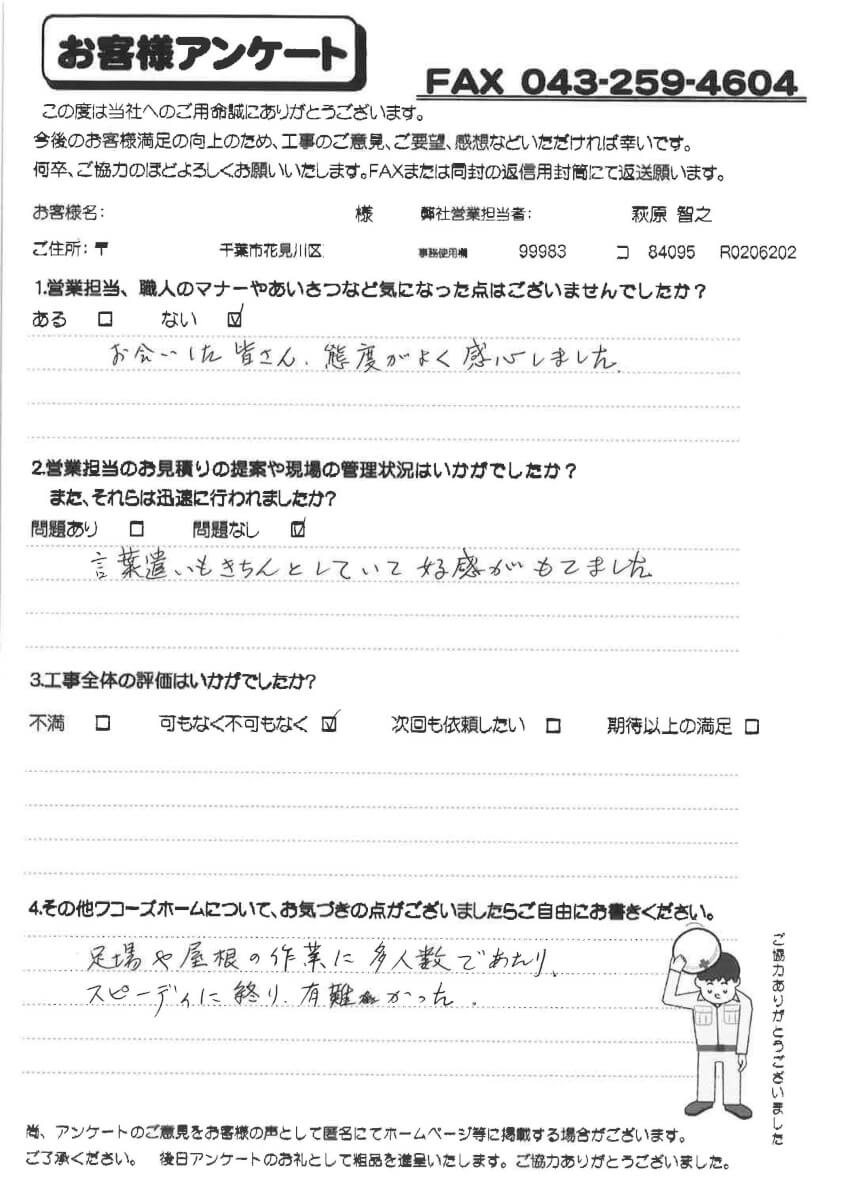 お客様アンケート
FAX 043-259-4604
この度は当社へのご用命誠にありがとうございます。
今後のお客様満足の向上のため、工事のご意見、ご要望、感想などいただければ幸いです。
何卒、ご協力のほどよろしくお願いいたします。FAXまたは同封の返信用封筒にて返送願います。
お客様名: 様 弊社営業担当者: 萩原 智之
ご住所:〒 千葉市花見川区 事務使用欄 99983 コ 84095 R0206202
1.営業担当、職人のマナーやあいさつなど気になった点はございませんでしたか?
ある □ ない ☑
お会いした皆さん、態度がよく感心しました。
2.営業担当のお見積りの提案や現場の管理状況はいかがでしたか?
また、それらは迅速に行われましたか?
問題あり □ 問題なし ☑
言葉遣いもきちんとしていて好感がもてました
3.工事全体の評価はいかがでしたか?
不満 □ 可もなく不可もなく ☑ 次回も依頼したい □ 期待以上の満足 □
4.その他ワコーズホームについて、お気づきの点がございましたらご自由にお書きください。
足場や屋根の作業に多人数であたり、
スピーディに終り、有難かった。
ご協力ありがとうございました
尚、アンケートのご意見をお客様の声として匿名にてホームページ等に掲載する場合がございます。
ご了承ください。 後日アンケートのお礼として粗品を進呈いたします。ご協力ありがとうございました。